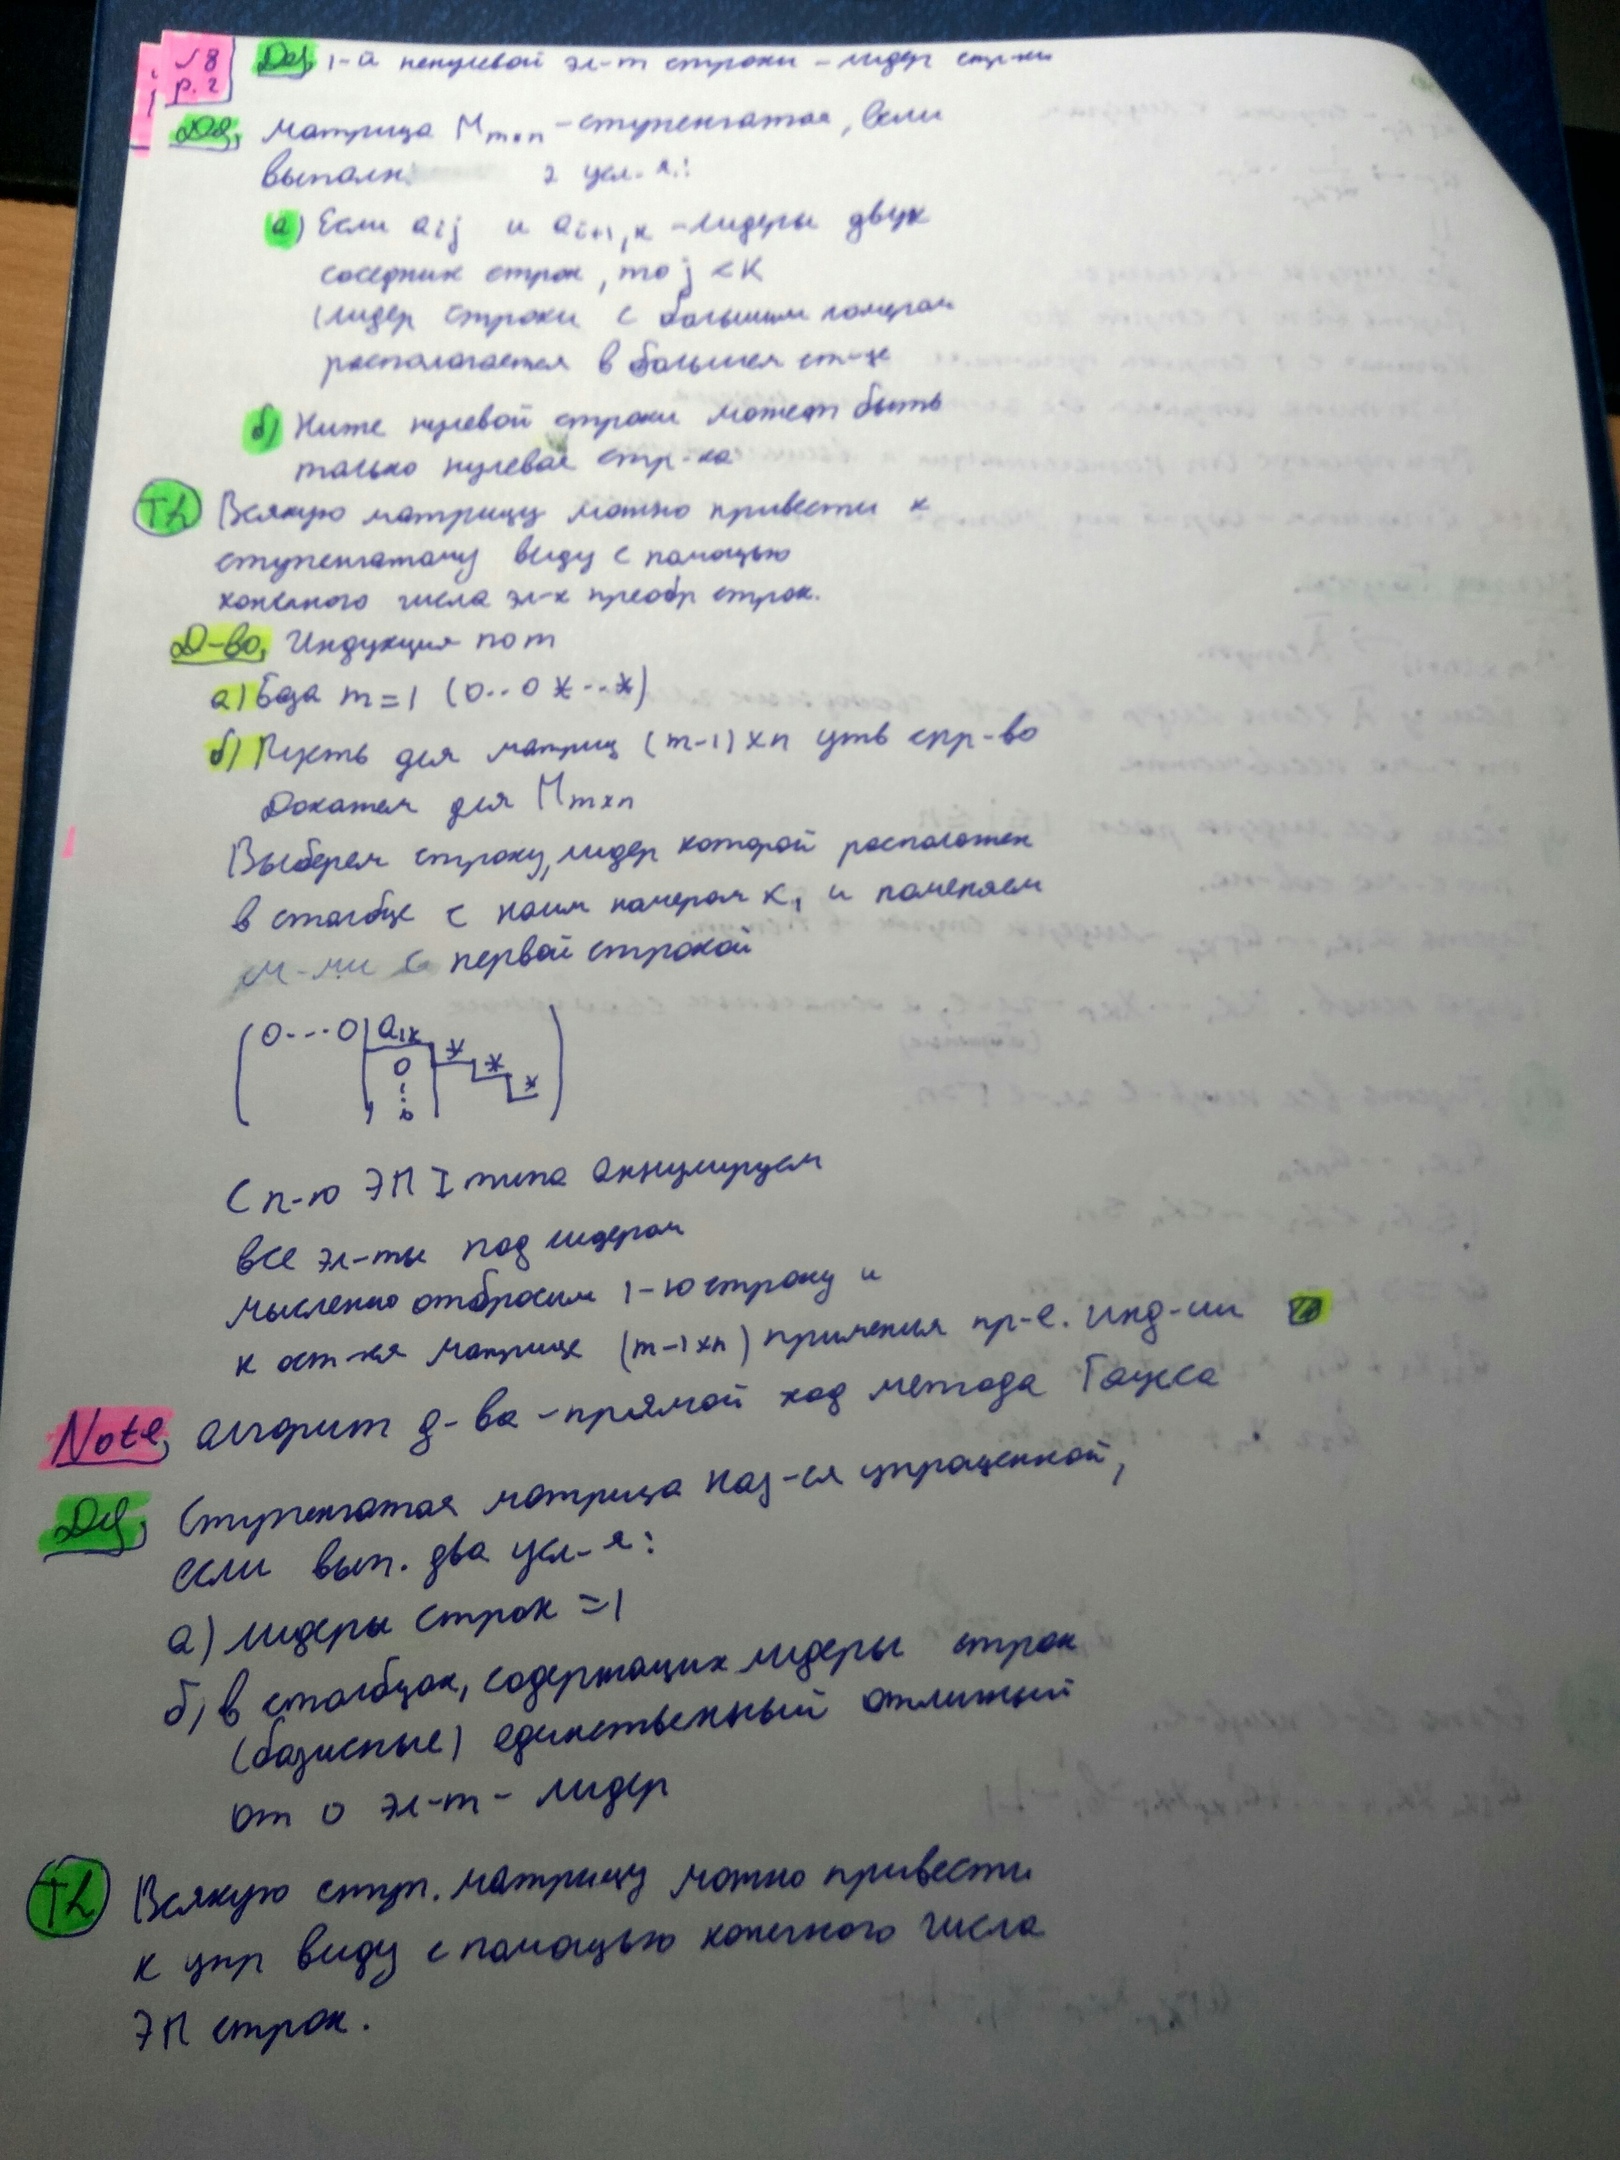 №8
р. 2
Def, 1-й ненулевой эл-т строки – лидер стр-ки
Def, Матрица M m×n – ступенчатая, если
выполн. 2 усл-я:
а) Если aij и ai+1,k – лидеры двух
соседних строк, то j < k
(лидер строки с большим номером
располагается в большем ст-це
б) Ниже нулевой строки может быть
только нулевая стр-ка
Th Всякую матрицу можно привести к
ступенчатому виду с помощью
конечного числа эл-х преобр строк.
Д-во, Индукция по m
а) База m=1 (0..0 * ·· *)
б) Пусть для матриц (m-1)×n утв спр-во
Докажем для Mm×n
Выберем строку, лидер которой расположен
в столбце с наим номером k, и поменяем
м-ми с первой строкой
0---0 a1k
0 * * *
⋮
0
С п-ю ЭП I типа аннулируем
все эл-ты под лидером
мысленно отбросим 1-ю строку и
к ост-ся матрице (m-1×n) применим пр-е. инд-ии
Note, алгоритм д-ва – прямой ход метода Гаусса
Def, Ступенчатая матрица наз-ся упрощенной,
если вып. два усл-я:
а) лидеры строк = 1
б) в столбцах, содержащих лидеры строк
(базисные) единственный отличный
от 0 эл-т – лидер
Th Всякую ступ. матрицу можно привести
к упр виду с помощью конечного числа
ЭП строк.